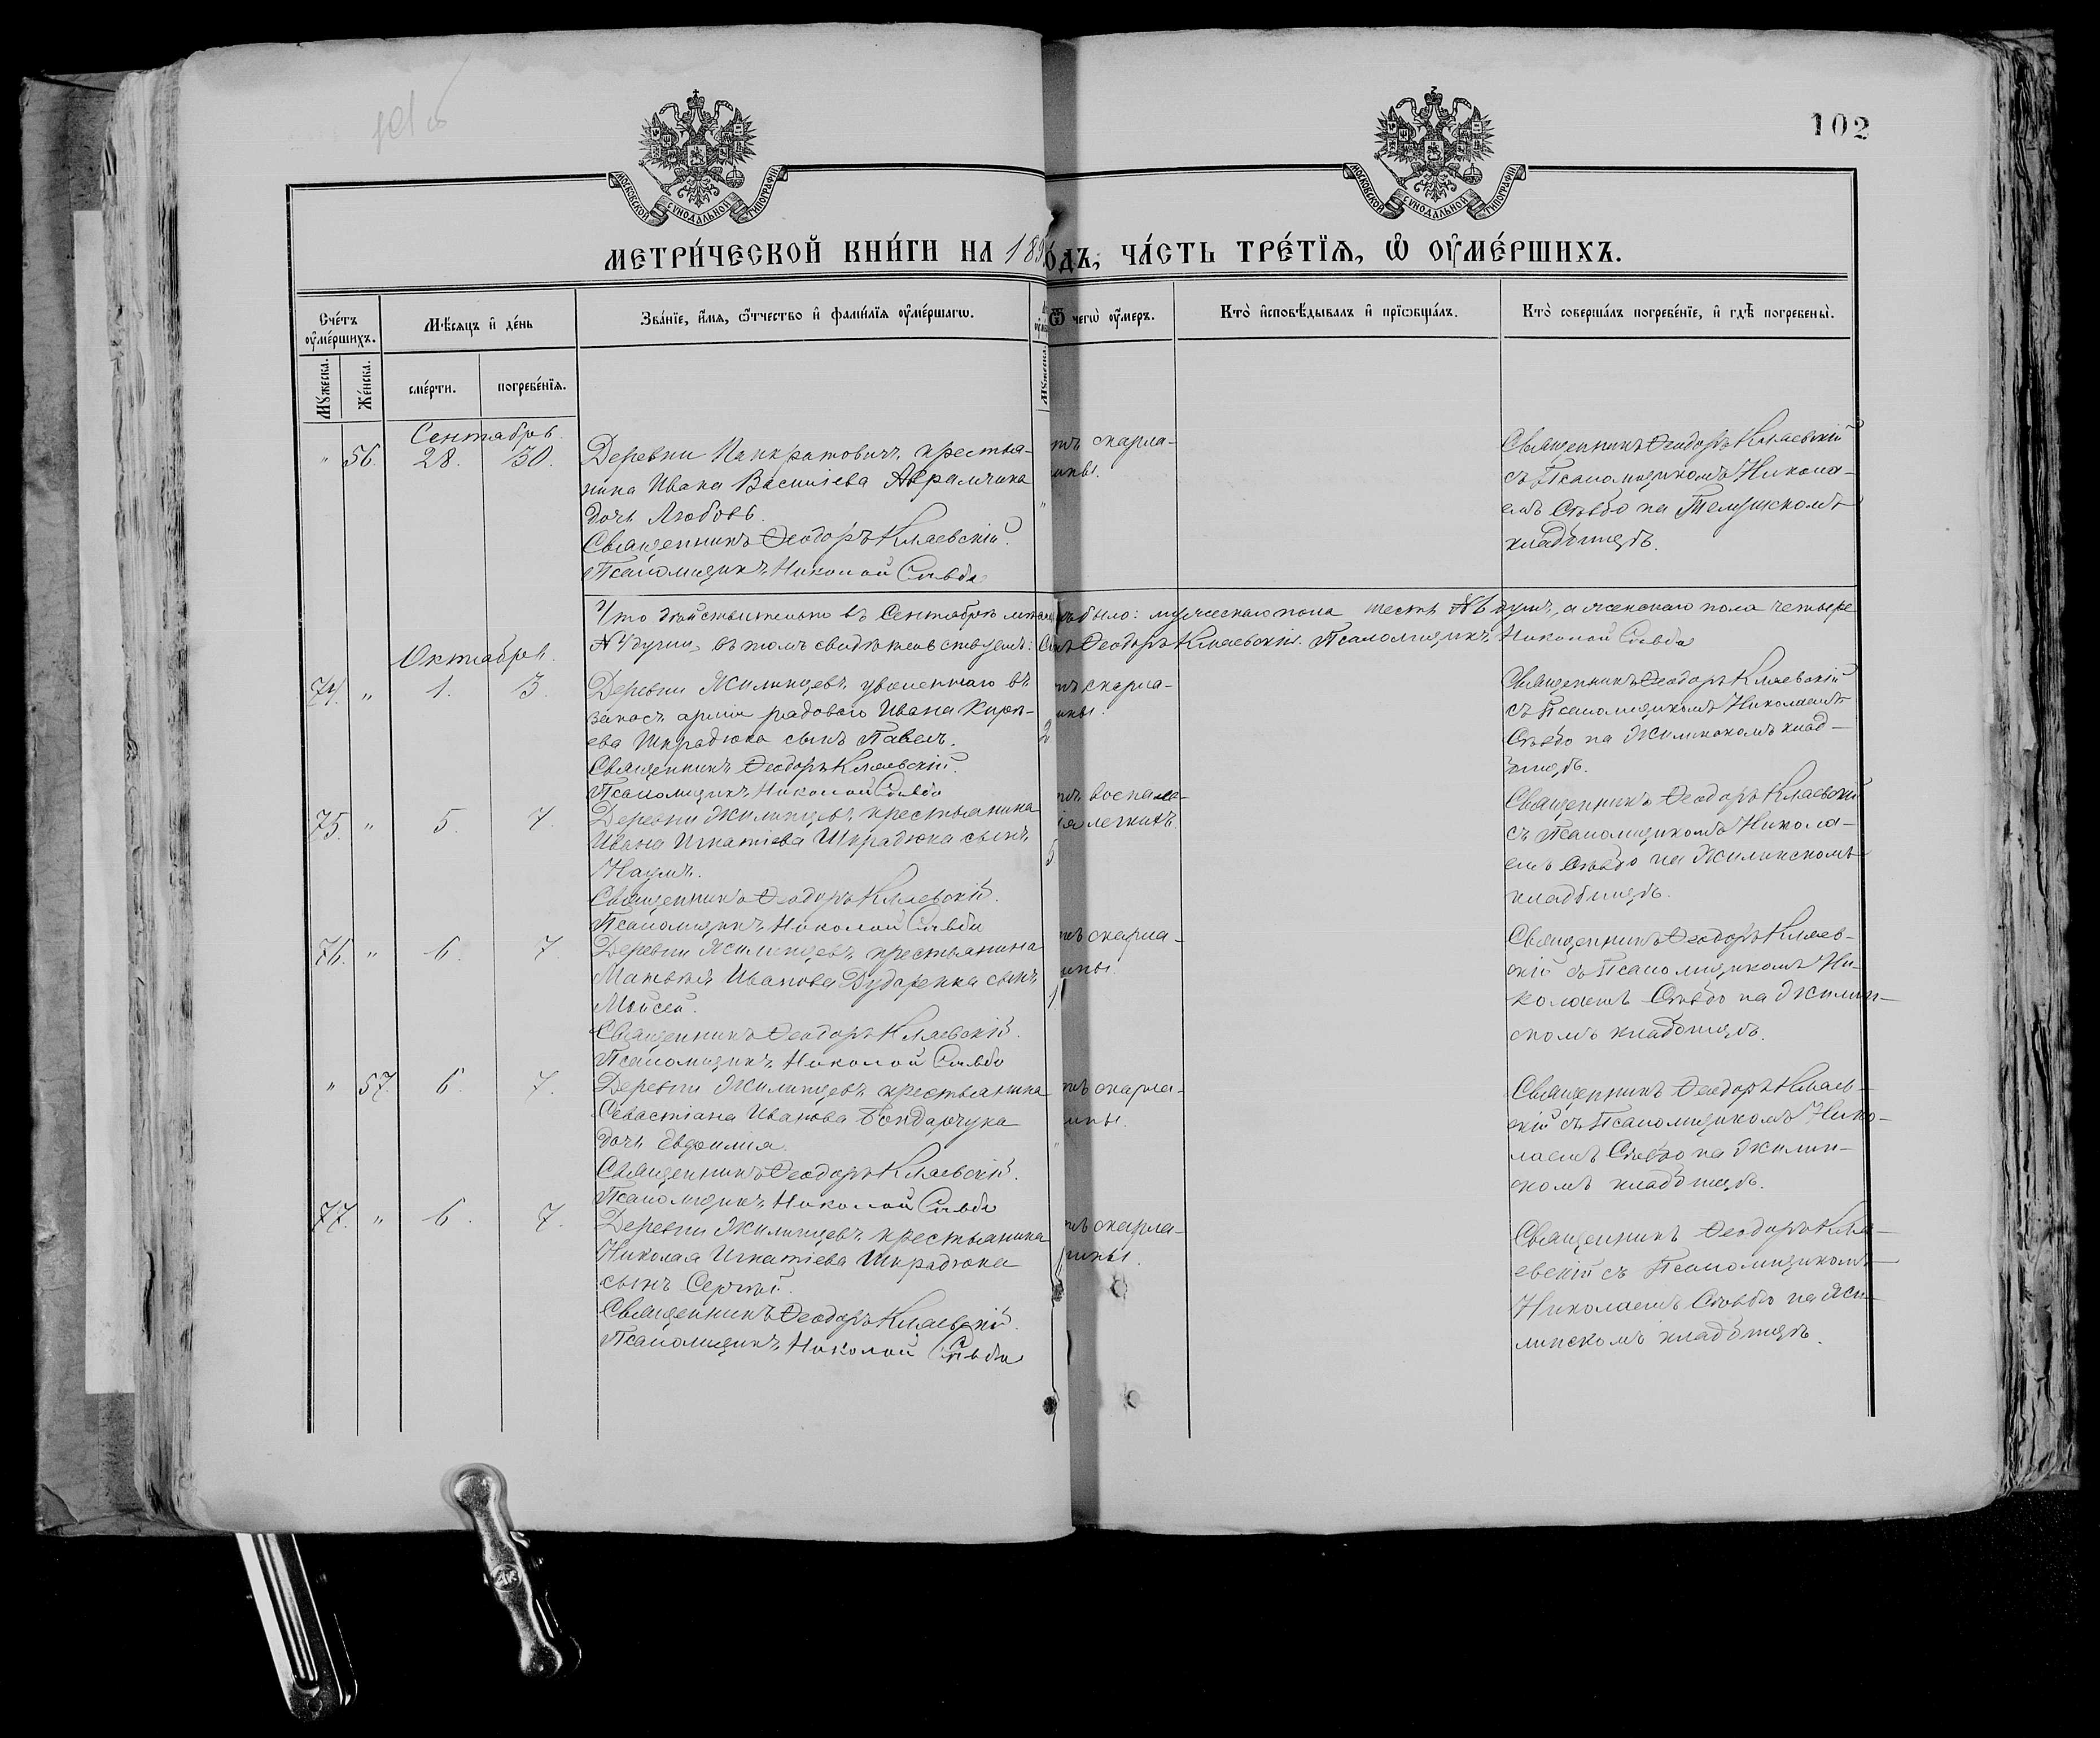 102
МОСКОВСКОЙ СѴНОДАЛЬНОЙ ТИПОГРАФІИ
МОСКОВСКОЙ СѴНОДАЛЬНОЙ ТИПОГРАФІИ
МЕТРИ́ЧЕСКОЙ КНИ́ГИ НА 189
ОДЪ, ЧА́СТЬ ТРЕ́ТІѦ, Ѡ҆ ОУ҆МЕ́РШИХЪ.
Сче́тъ оу҆ме́ршихъ.
Мѣ́сяцъ и҆ де́нь
Зва́нїе, и҆́мѧ, ѻ҆́тчество и҆ фами́лїѧ оу҆ме́ршагѡ.
Ѿ чегѡ̀ оу҆́меръ.
Кто̀ и҆сповѣ́дывалъ и҆ прїѡбща́лъ.
Кто̀ соверша́лъ погребе́нїе, и҆ гдѣ̀ погребены̀.
Мꙋ́жеска.
Же́нска.
сме́рти.
погребе́нїѧ.
Мꙋ́жеска.
Сентябрь.
" 56. 28. 30.
Деревни Панкратовичъ крестья-
нина Ивана Васильева Аврамчика
дочь Любовь.
Священникъ Ѳеодоръ Кляевскій.
Псаломщикъ Николай
тъ скарла-
ины.
"
Священникъ Ѳеодоръ Кляевскій
съ Псаломщикомъ Никола-
емъ на
кладбищѣ.
Что действительно въ Сентябрѣ было: мужескаго пола шесть душъ, а женскаго пола четыре
душы, въ томъ свидѣтельствуемъ: Ѳеодоръ Кляевскій. Псаломщикъ Николай
Октябрь.
74. " 1. 3.
Деревни Жилинцевъ уволеннаго въ
запасъ арміи рядоваго Ивана
ева Шкрадюка сынъ Павелъ.
Священникъ Ѳеодоръ Кляевскій.
Псаломщикъ Николай
2
тъ скарла-
ины.
Священникъ Ѳеодоръ Кляевскій
съ Псаломщикомъ Николаемъ
на Жилинскомъ клад-
бищѣ.
75. " 5. 7.
Деревни Жилинцевъ крестьянина
Ивана Игнатіева Шкрадюка сынъ
Наумъ.
Священникъ Ѳеодоръ Кляевскій.
Псаломщикъ Николай
5
тъ воспале-
ія легкихъ
Священникъ Ѳеодоръ Кляевскій
съ Псаломщикомъ Никола-
емъ на Жилинскомъ
кладбищѣ.
76. " 6. 7.
Деревни Жилинцевъ крестьянина
Матвѣя Иванова Дударенка сынъ
Мойсей.
Священникъ Ѳеодоръ Кляевскій.
Псаломщикъ Николай
1
тъ скарла-
ины.
Священникъ Ѳеодоръ Кляев-
скій съ Псаломщикомъ Ни-
колаемъ на Жилин-
скомъ кладбищѣ.
" 57. 6. 7.
Деревни Жилинцевъ крестьянина
Севастіана Иванова Бондарчука
дочь Евфимія.
Священникъ Ѳеодоръ Кляевскій.
Псаломщикъ Николай
"
тъ скарла-
ины.
Священникъ Ѳеодоръ Кляев-
скій съ Псаломщикомъ Нико-
лаемъ на Жилин-
скомъ кладбищѣ.
77. " 6. 7.
Деревни Жилинцевъ крестьянина
Николая Игнатіева Шкрадюка
сынъ Сергій.
Священникъ Ѳеодоръ Кляевскій.
Псаломщикъ Николай
тъ скарла-
ины.
Священникъ Ѳеодоръ Кля-
евскій съ Псаломщикомъ
Николаемъ на Жи-
линскомъ кладбищѣ.